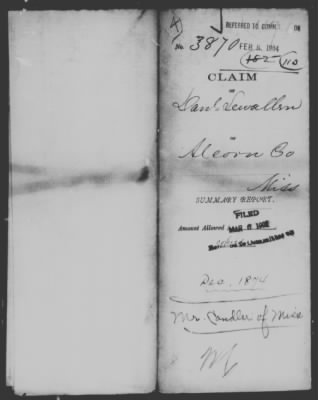 (4)
REFERRED TO COMM. ON
No. 3870 FEB. 5, 1904
110
CLAIM
OF
Danl. Lewallen
OF
Alcorn Co
Miss
SUMMARY REPORT.
FILED
Amount Allowed MAR 6 1902
Dec. 1874
Mr. Candler of Miss